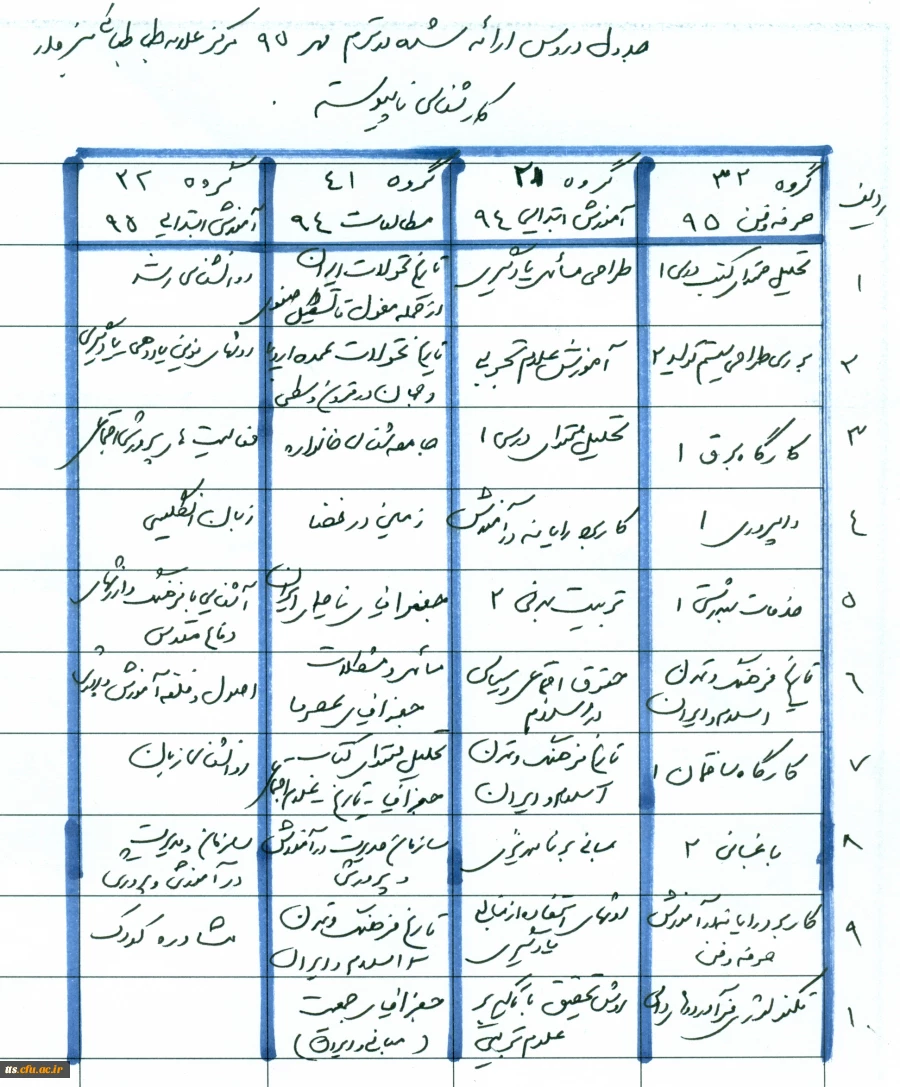 جدول دروس ارائه شده در ترم مهر ۹۵ مرکز علامه طباطبائی
کارشناسی ناپیوسته
ردیف
گروه ۳۲
حرفه وفن ۹۵
گروه ۲۱
آموزش ابتدایی ۹۴
گروه ۴۱
مطالعات ۹۴
گروه ۲۲
آموزش ابتدایی ۹۵
۱
تحلیل محتوای کتب درسی ۱
طراحی مسائل یادگیری
تاریخ تحولات ایران
از حمله مغول تا تشکیل صفوی
روانشناسی رشد
۲
بررسی طراحی سیستم تولید ۲
آموزش علوم تجربی
تاریخ تحولات عمده اروپا
و جهان در قرون وسطی
روشهای نوین یاددهی یادگیری
۳
کارگاه برق ۱
تحلیل محتوای درسی ۱
جامعه شناسی خانواده
فعالیت های پرورشی اجتماعی
۴
دامپروری ۱
کاربرد رایانه در آموزش
زمین در فضا
زبان انگلیسی
۵
خدمات بهزیستی ۱
تربیت بدنی ۲
جغرافیای ناحیه ای ایران
آشنایی با فرهنگ و ارزشهای
دفاع مقدس
۶
تاریخ فرهنگ و تمدن
اسلام و ایران
حقوق اجتماعی و سیاسی
در اسلام
مسائل و مشکلات
جغرافیای عصر ما
اصول و فلسفه آموزش و پرورش
۷
کارگاه ساختمان ۱
تاریخ فرهنگ و تمدن
اسلام و ایران
تحلیل محتوای کتاب
جغرافیا - تاریخ - علوم اجتماعی
روانشناسی زبان
۸
باغبانی ۲
مبانی برنامه ریزی
سازمان مدیریت در آموزش
و پرورش
سازمان و مدیریت
در آموزش و پرورش
۹
کاربرد رایانه در آموزش
حرفه وفن
روشهای استفاده از منابع
یادگیری
تاریخ فرهنگ و تمدن
اسلام و ایران
مشاوره کودک
۱۰
تکنولوژی فرآورده های دامی
روش تحقیق با تاکید بر
علوم تربیتی
جغرافیای جمعیت
( مبانی و ایران )
tts.cfu.ac.ir